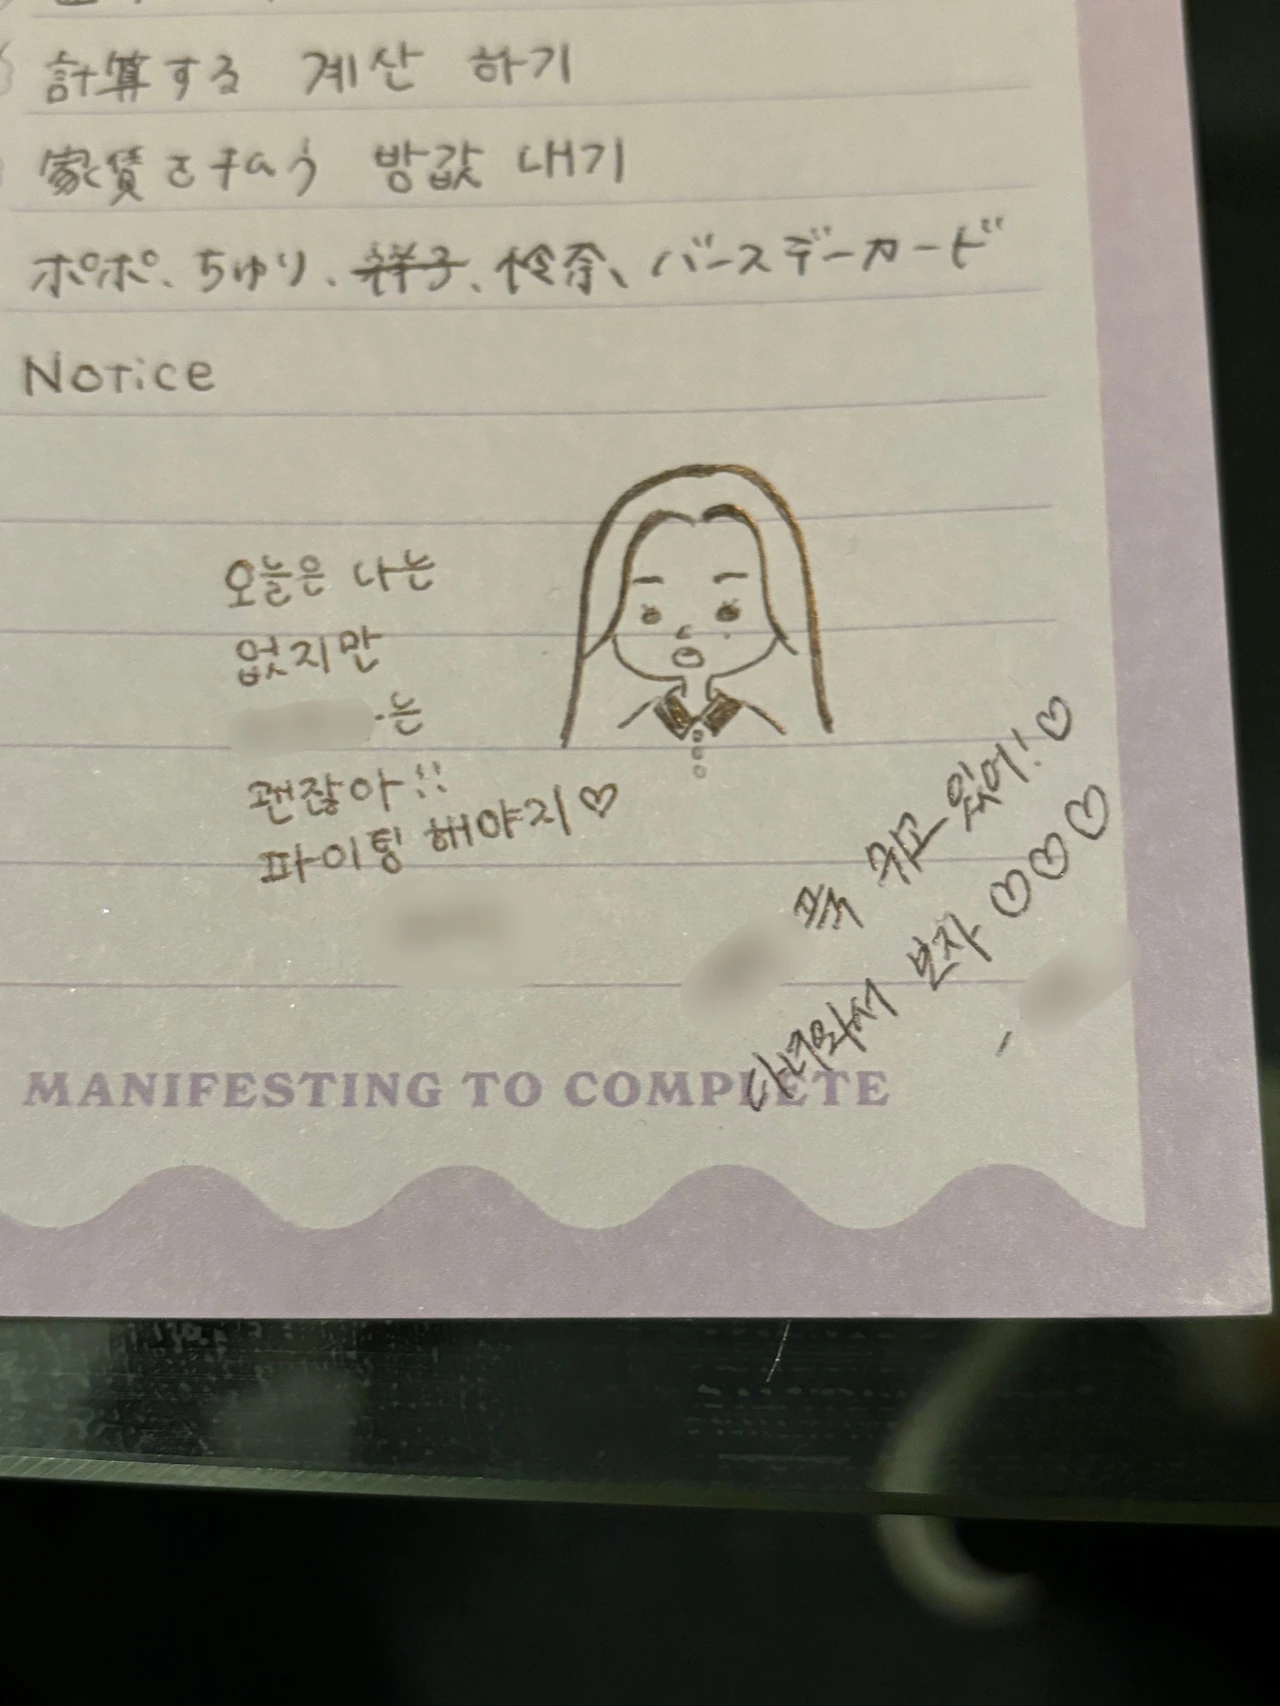 計算する 계산 하기
家賃を払う 방값 내기
ポポ、ちゅり、祥子、怜奈、バースデーカード
Notice
오늘은 나는
없지만
는
괜찮아!!
파이팅 해야지♡
푹 쉬고 있어!♡
다녀와서 보자 ♡♡♡
-
MANIFESTING TO COMPLETE